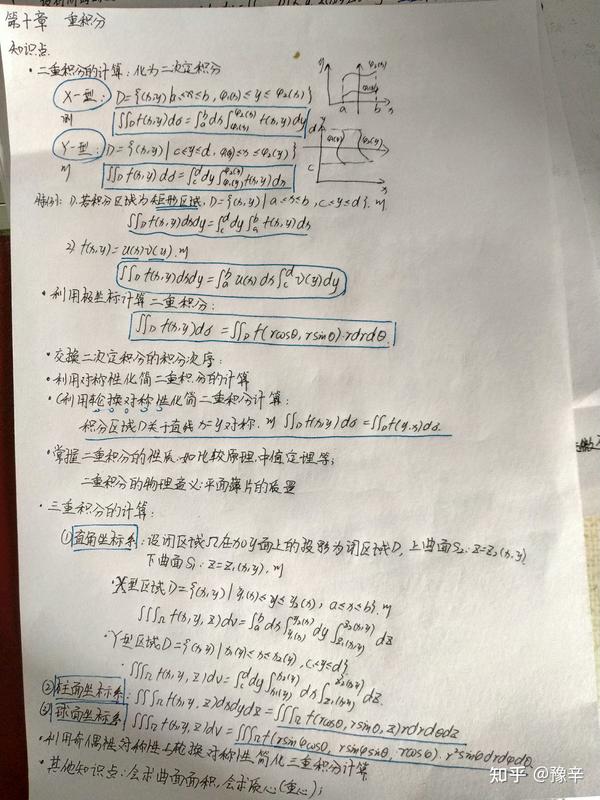 第十章 重积分
知识点
·二重积分的计算：化为二次定积分
X-型：D={(x,y)|a≤x≤b, φ₁(x)≤y≤φ₂(x)}
则 ∬_D f(x,y)dσ=∫_a^b dx∫_{φ₁(x)}^{φ₂(x)} f(x,y)dy
Y-型：D={(x,y)|c≤y≤d, φ₁(y)≤x≤φ₂(y)}
则 ∬_D f(x,y)dσ=∫_c^d dy∫_{φ₁(y)}^{φ₂(y)} f(x,y)dx
特例：1).若积分区域为矩形区域，D={(x,y)|a≤x≤b, c≤y≤d}.则
∬_D f(x,y)dxdy=∫_c^d dy∫_a^b f(x,y)dx
2) f(x,y)=u(x)v(y).则
∬_D f(x,y)dxdy=∫_a^b u(x)dx∫_c^d v(y)dy
·利用极坐标计算二重积分：
∬_D f(x,y)dσ=∬_D f(rcosθ, rsinθ)·rdrdθ.
·交换二次定积分的积分次序：
·利用对称性化简二重积分的计算
·(利用轮换对称性化简二重积分计算：
积分区域D关于直线x=y对称.则 ∬_D f(x,y)dσ=∬_D f(y,x)dσ.
·掌握二重积分的性质.如比较原理,中值定理等;
二重积分的物理意义:平面薄片的质量
·三重积分的计算：
①直角坐标系：设闭区域Ω在xoy面上的投影为闭区域D，上曲面S₂:z=z₂(x,y)
下曲面S₁:z=z₁(x,y).则
·X型区域D={(x,y)|y₁(x)≤y≤y₂(x), a≤x≤b}.则
∭_Ω f(x,y,z)dv=∫_a^b dx∫_{y₁(x)}^{y₂(x)} dy∫_{z₁(x,y)}^{z₂(x,y)} dz
·Y型区域D={(x,y)|x₁(y)≤x≤x₂(y), c≤y≤d}
·∭_Ω f(x,y,z)dv=∫_c^d dy∫_{x₁(y)}^{x₂(y)} dx∫_{z₁(x,y)}^{z₂(x,y)} dz.
②柱面坐标系：∭_Ω f(x,y,z)dxdydz=∭_Ω f(rcosθ, rsinθ, z)rdrdθdz
③球面坐标系 ∭_Ω f(x,y,z)dv=∭_Ω f(rsinφcosθ, rsinφsinθ, rcosθ)·r²sinθdrdφdθ
·利用奇偶性对称性与轮换对称性简化三重积分计算
·其他知识点：会求曲面面积，会求质心(重心);
知乎 @豫辛